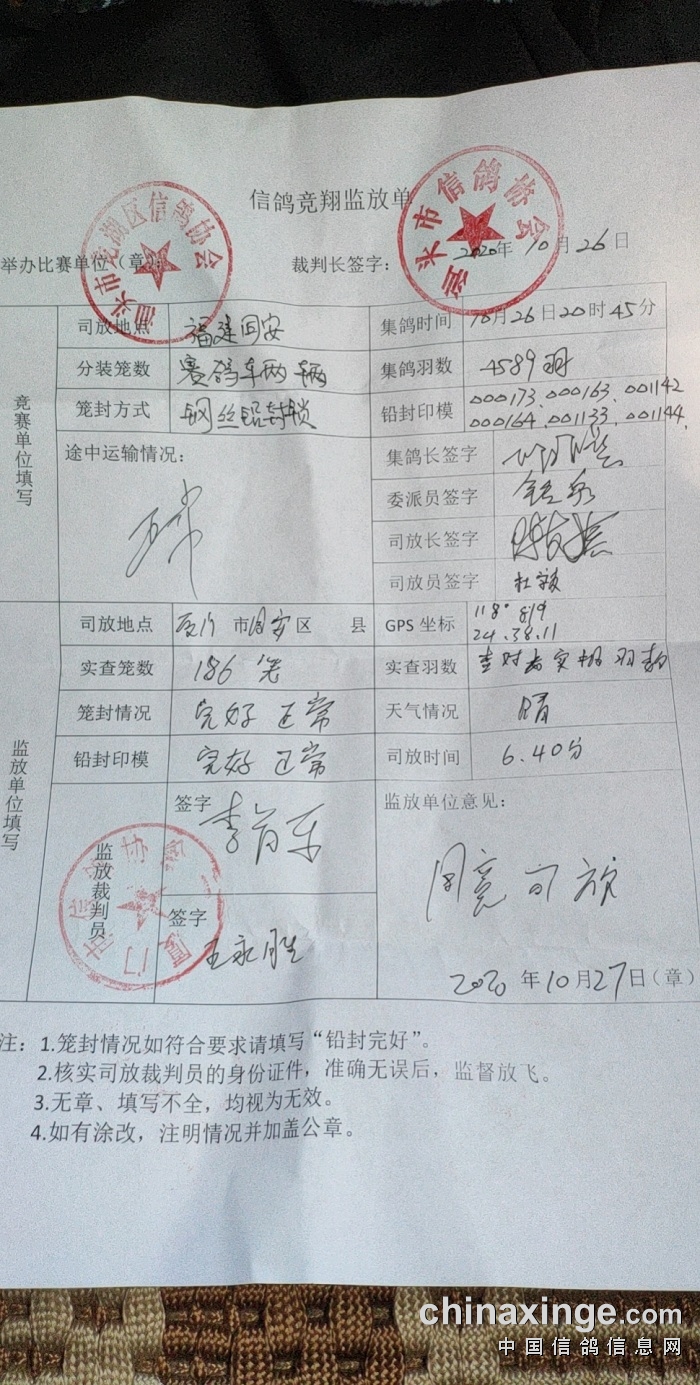 信鸽竞翔监放单
汕头市龙湖区信鸽协会
汕头市信鸽协会
举办比赛单位(章):
裁判长签字:
2020年10月26日
竞赛单位填写
司放地点 福建同安 集鸽时间 10月26日20时45分
分装笼数 赛鸽车两辆 集鸽羽数 4589羽
笼封方式 钢丝铅封锁 铅封印模 000173、000163、001142
000164、001133、001144、
途中运输情况: 正常 集鸽长签字
委派员签字
司放长签字
司放员签字
监放单位填写
司放地点 厦门市同安区 县 GPS坐标 118°819
24.38.11
实查笼数 186笼 实查羽数 查对 实 羽数
笼封情况 完好 正常 天气情况 晴
铅封印模 完好 正常 司放时间 6.40分
监放裁判员
厦门市信鸽协会
签字
签字 王永胜
监放单位意见:
同意司放
2020年10月27日(章)
注:1.笼封情况如符合要求请填写“铅封完好”。
2.核实司放裁判员的身份证件,准确无误后,监督放飞。
3.无章、填写不全,均视为无效。
4.如有涂改,注明情况并加盖公章。
chinaxinge.com
中国信鸽信息网